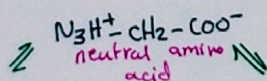 N3H⁺–CH2–COO⁻
neutral amino
acid